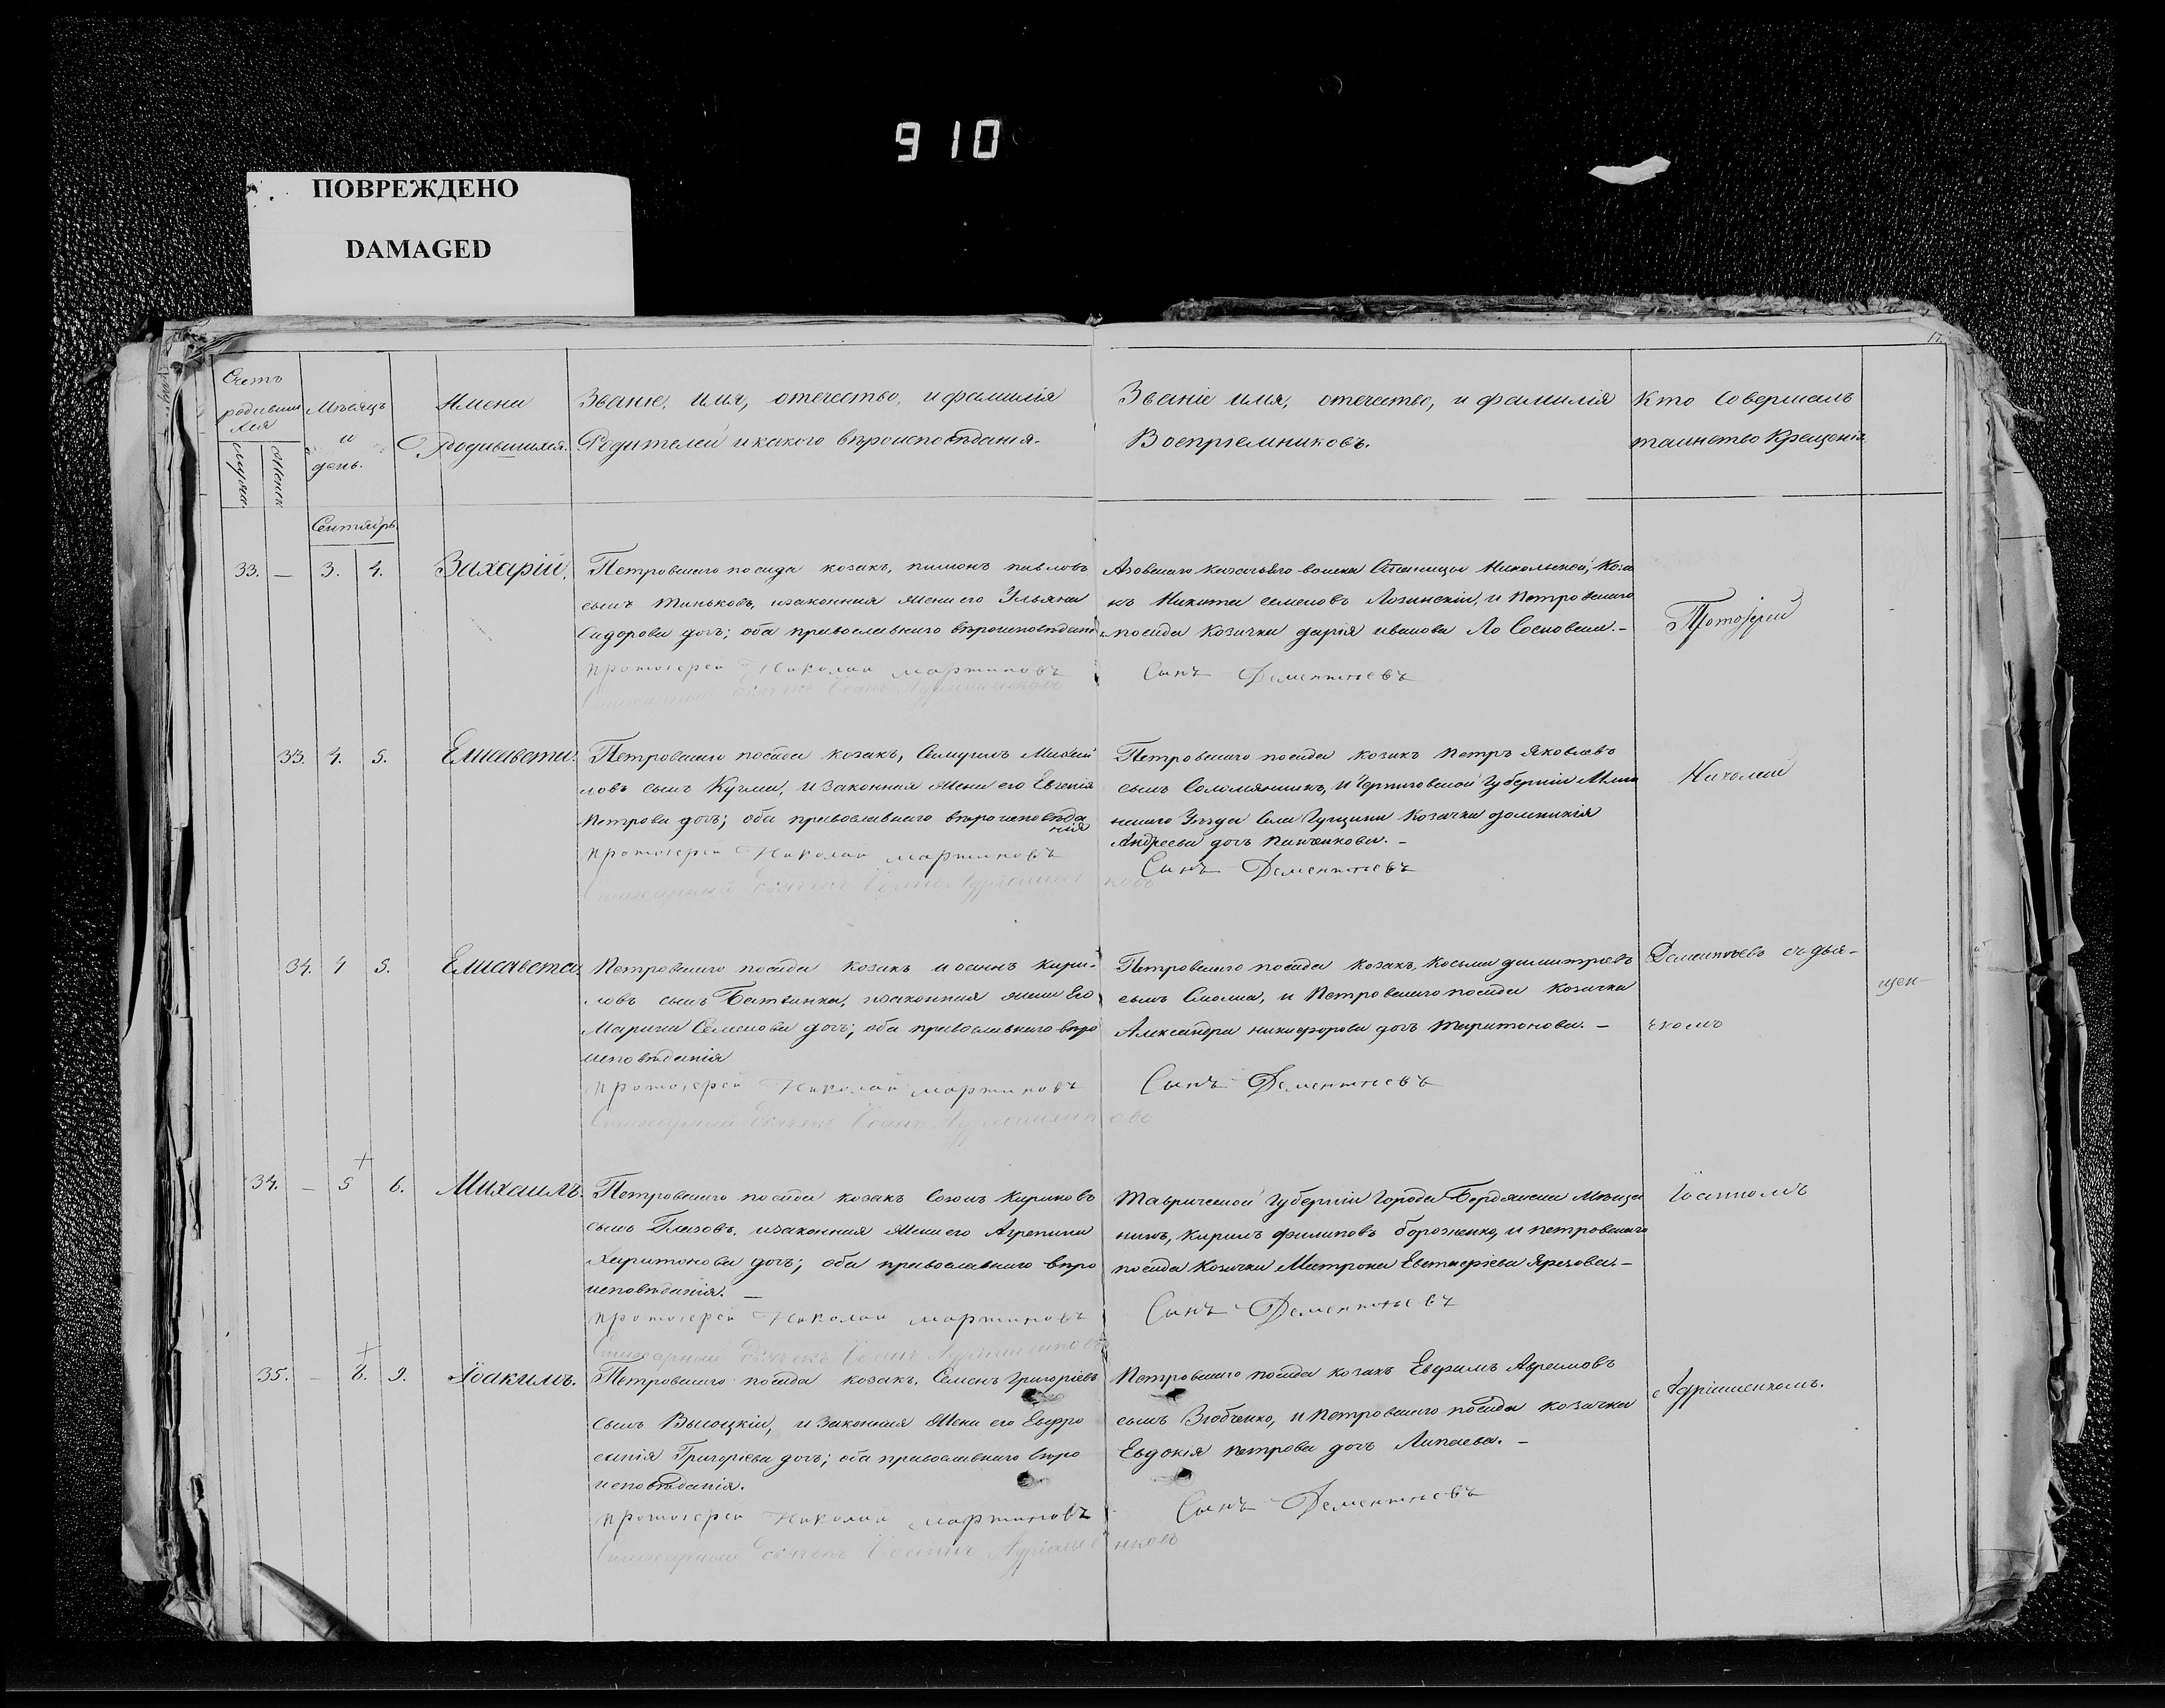 910
ПОВРЕЖДЕНО
DAMAGED
17.
Счетъ
родивши
хся
Мѣсяцъ
и
день.
Имена
Родившихся.
Званіе, имя, отечество, и фамилія
Родителей и какого вѣроисповѣданія.
Званіе имя, отечество, и фамилія
Воспріемниковъ.
Кто совершалъ
таинство Крещенія
Сентябрь
33. — 3. 4.
Захарій.
Петровскаго посада козакъ, пимонъ павловъ
сынъ Миньковъ, изаконная жена его Ульяна
Сидорова дочь; оба православнаго вѣроисповѣдані
протоіерей Николай мартиновъ
Азовскаго казачьяго войска Станицы Никольской, Коза
къ Никита семеновъ Лозинскій, и Петровскаго
посада Козачка дарія иванова
Сынъ Дементьевъ
Протоіерей
33. 4. 5.
Елисавета.
Петровскаго посада козакъ, Самуилъ Михай
ловъ сынъ Кучма, и законная жена его Евгенія
Петрова дочь; оба православнаго вѣроисповѣда
нія
протоіерей Николай мартиновъ
Стихарный дьячекъ Іоанъ Адріашенковъ
Петровскаго посада козакъ Петръ Яковлевъ
сынъ Соломяникъ, и Черниговской Губерніи Мгли
нскаго Уѣзда Села Гущины Козачка домникія
Андреева дочь панченкова. —
Сынъ Дементьевъ
Николай
34. 4 5.
Елисавета.
Петровскаго посада козакъ иоанъ кири-
ловъ сынъ Батвинка, изаконная жена Его
Марина Семенова дочь; оба православнаго вѣро
исповѣданія
протоіерей Николай мартиновъ
Стихарный дьячекъ Іоанъ Адріашенковъ
Петровскаго посада козакъ, Косьма димитріевъ
сынъ Смола, и Петровскаго посада козачка
Александра никифорова дочь Таритонова. —
Сынъ Дементьевъ
Дементьевъ съ дья-
чкомъ
щен-
34. — 5 6.
Михаилъ.
Петровскаго посада козакъ Созонъ Кириловъ
сынъ Глазовъ, изаконная жена его Агрепина
Харитонова дочь; оба православнаго вѣро
исповѣданія. —
протоіерей Николай мартиновъ
Стихарный дьячекъ Іоанъ Адріашенковъ
Таврической Губерніи Города Бердянска Мѣща
нинъ, Кирилъ филиповъ бороженко, и петровскаго
посада Козачка Матрона Евстаѳіева Ярезова. —
Сынъ Дементьевъ
Іоанномъ
35. — 8. 9.
Іоакимъ.
Петровскаго посада козакъ, Семенъ Григоріевъ
сынъ Высоцкій, и законная Жена его Евфро
синія Григоріева дочь; оба православнаго вѣро
исповѣданія.
протоіерей Николай мартиновъ
Стихарный дьячекъ Іоанъ Адріашенковъ
Петровскаго посада козакъ Евфимъ Авраамовъ
сынъ Зюбченко, и Петровскаго посада козачка
Евдокія петрова дочь Липаева. —
Сынъ Дементьевъ
Адріашенкомъ.